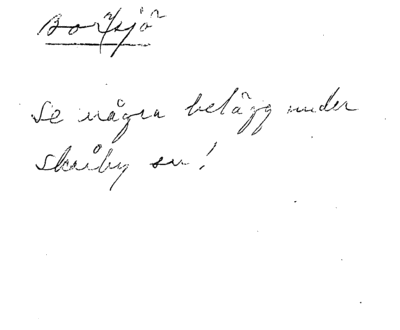 Borrsjö
Se några belägg under
Skårby sn!